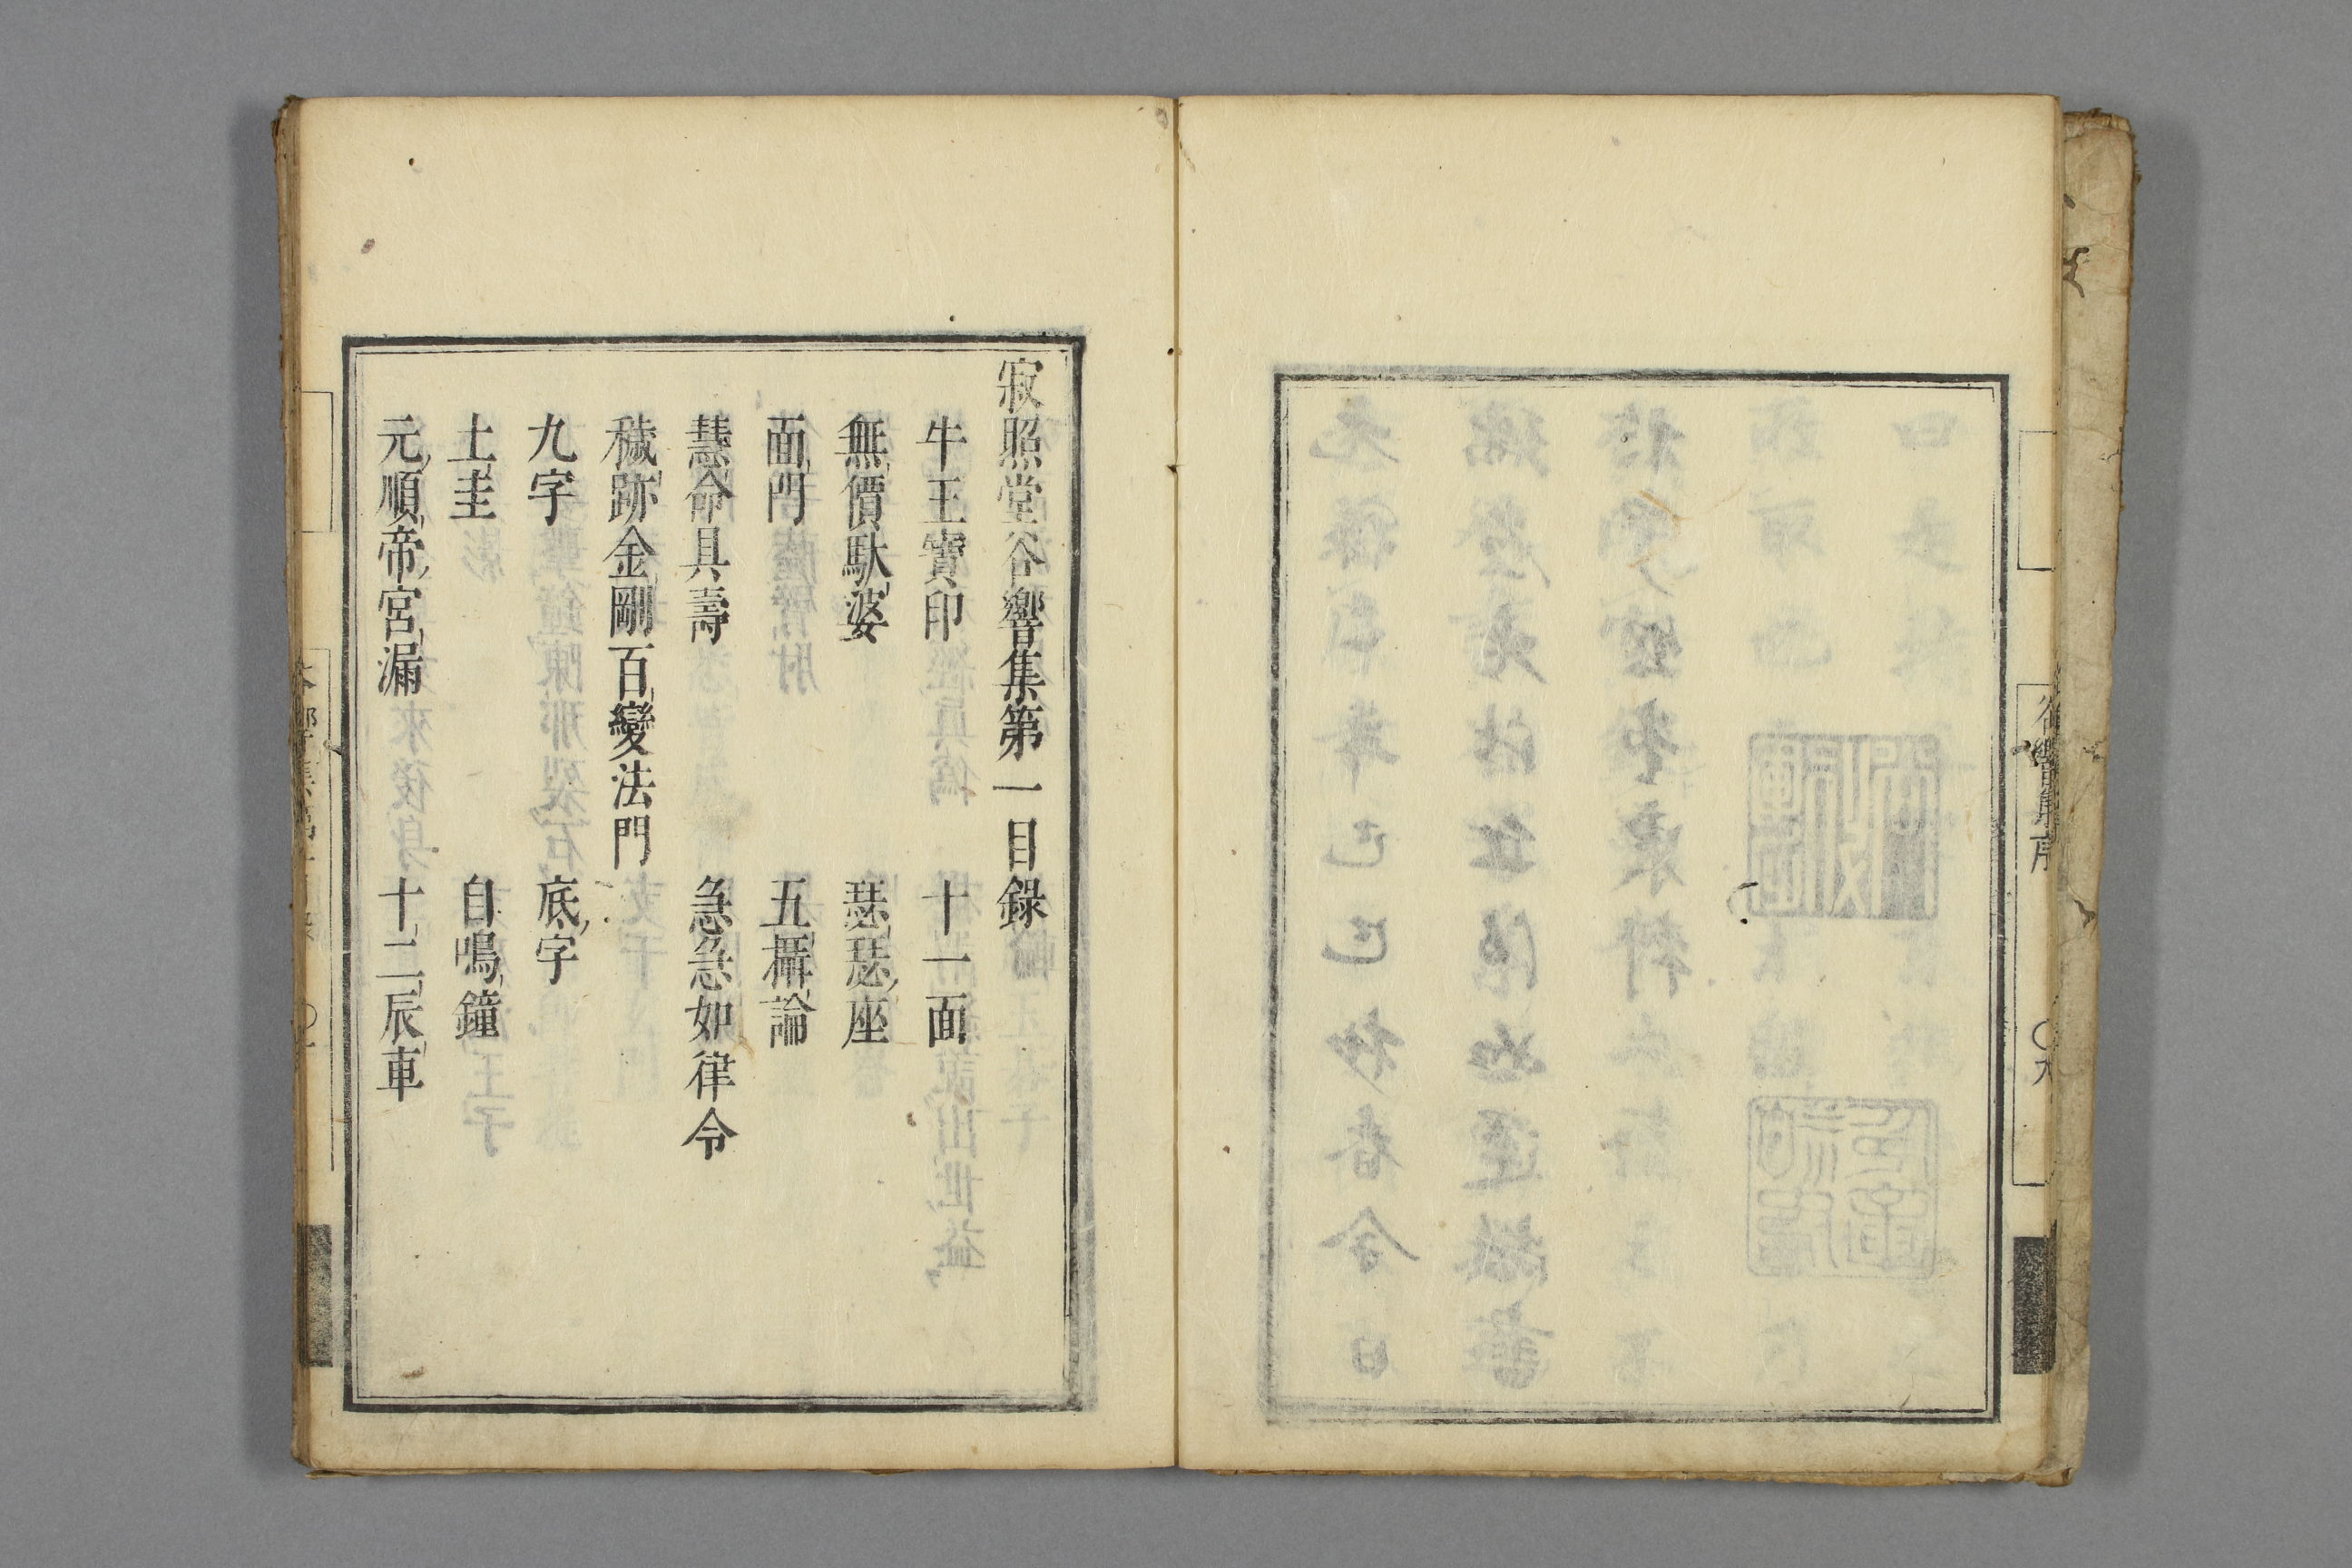 谷響集序
〇九
寂照堂谷響集第一目錄
牛王寶印　十一面
無價馱婆　瑟瑟座
面門　五攝論
慧命具壽　急急如律令
穢跡金剛百變法門
九字　底字
土圭　自鳴鐘
元順帝宮漏　十二辰車